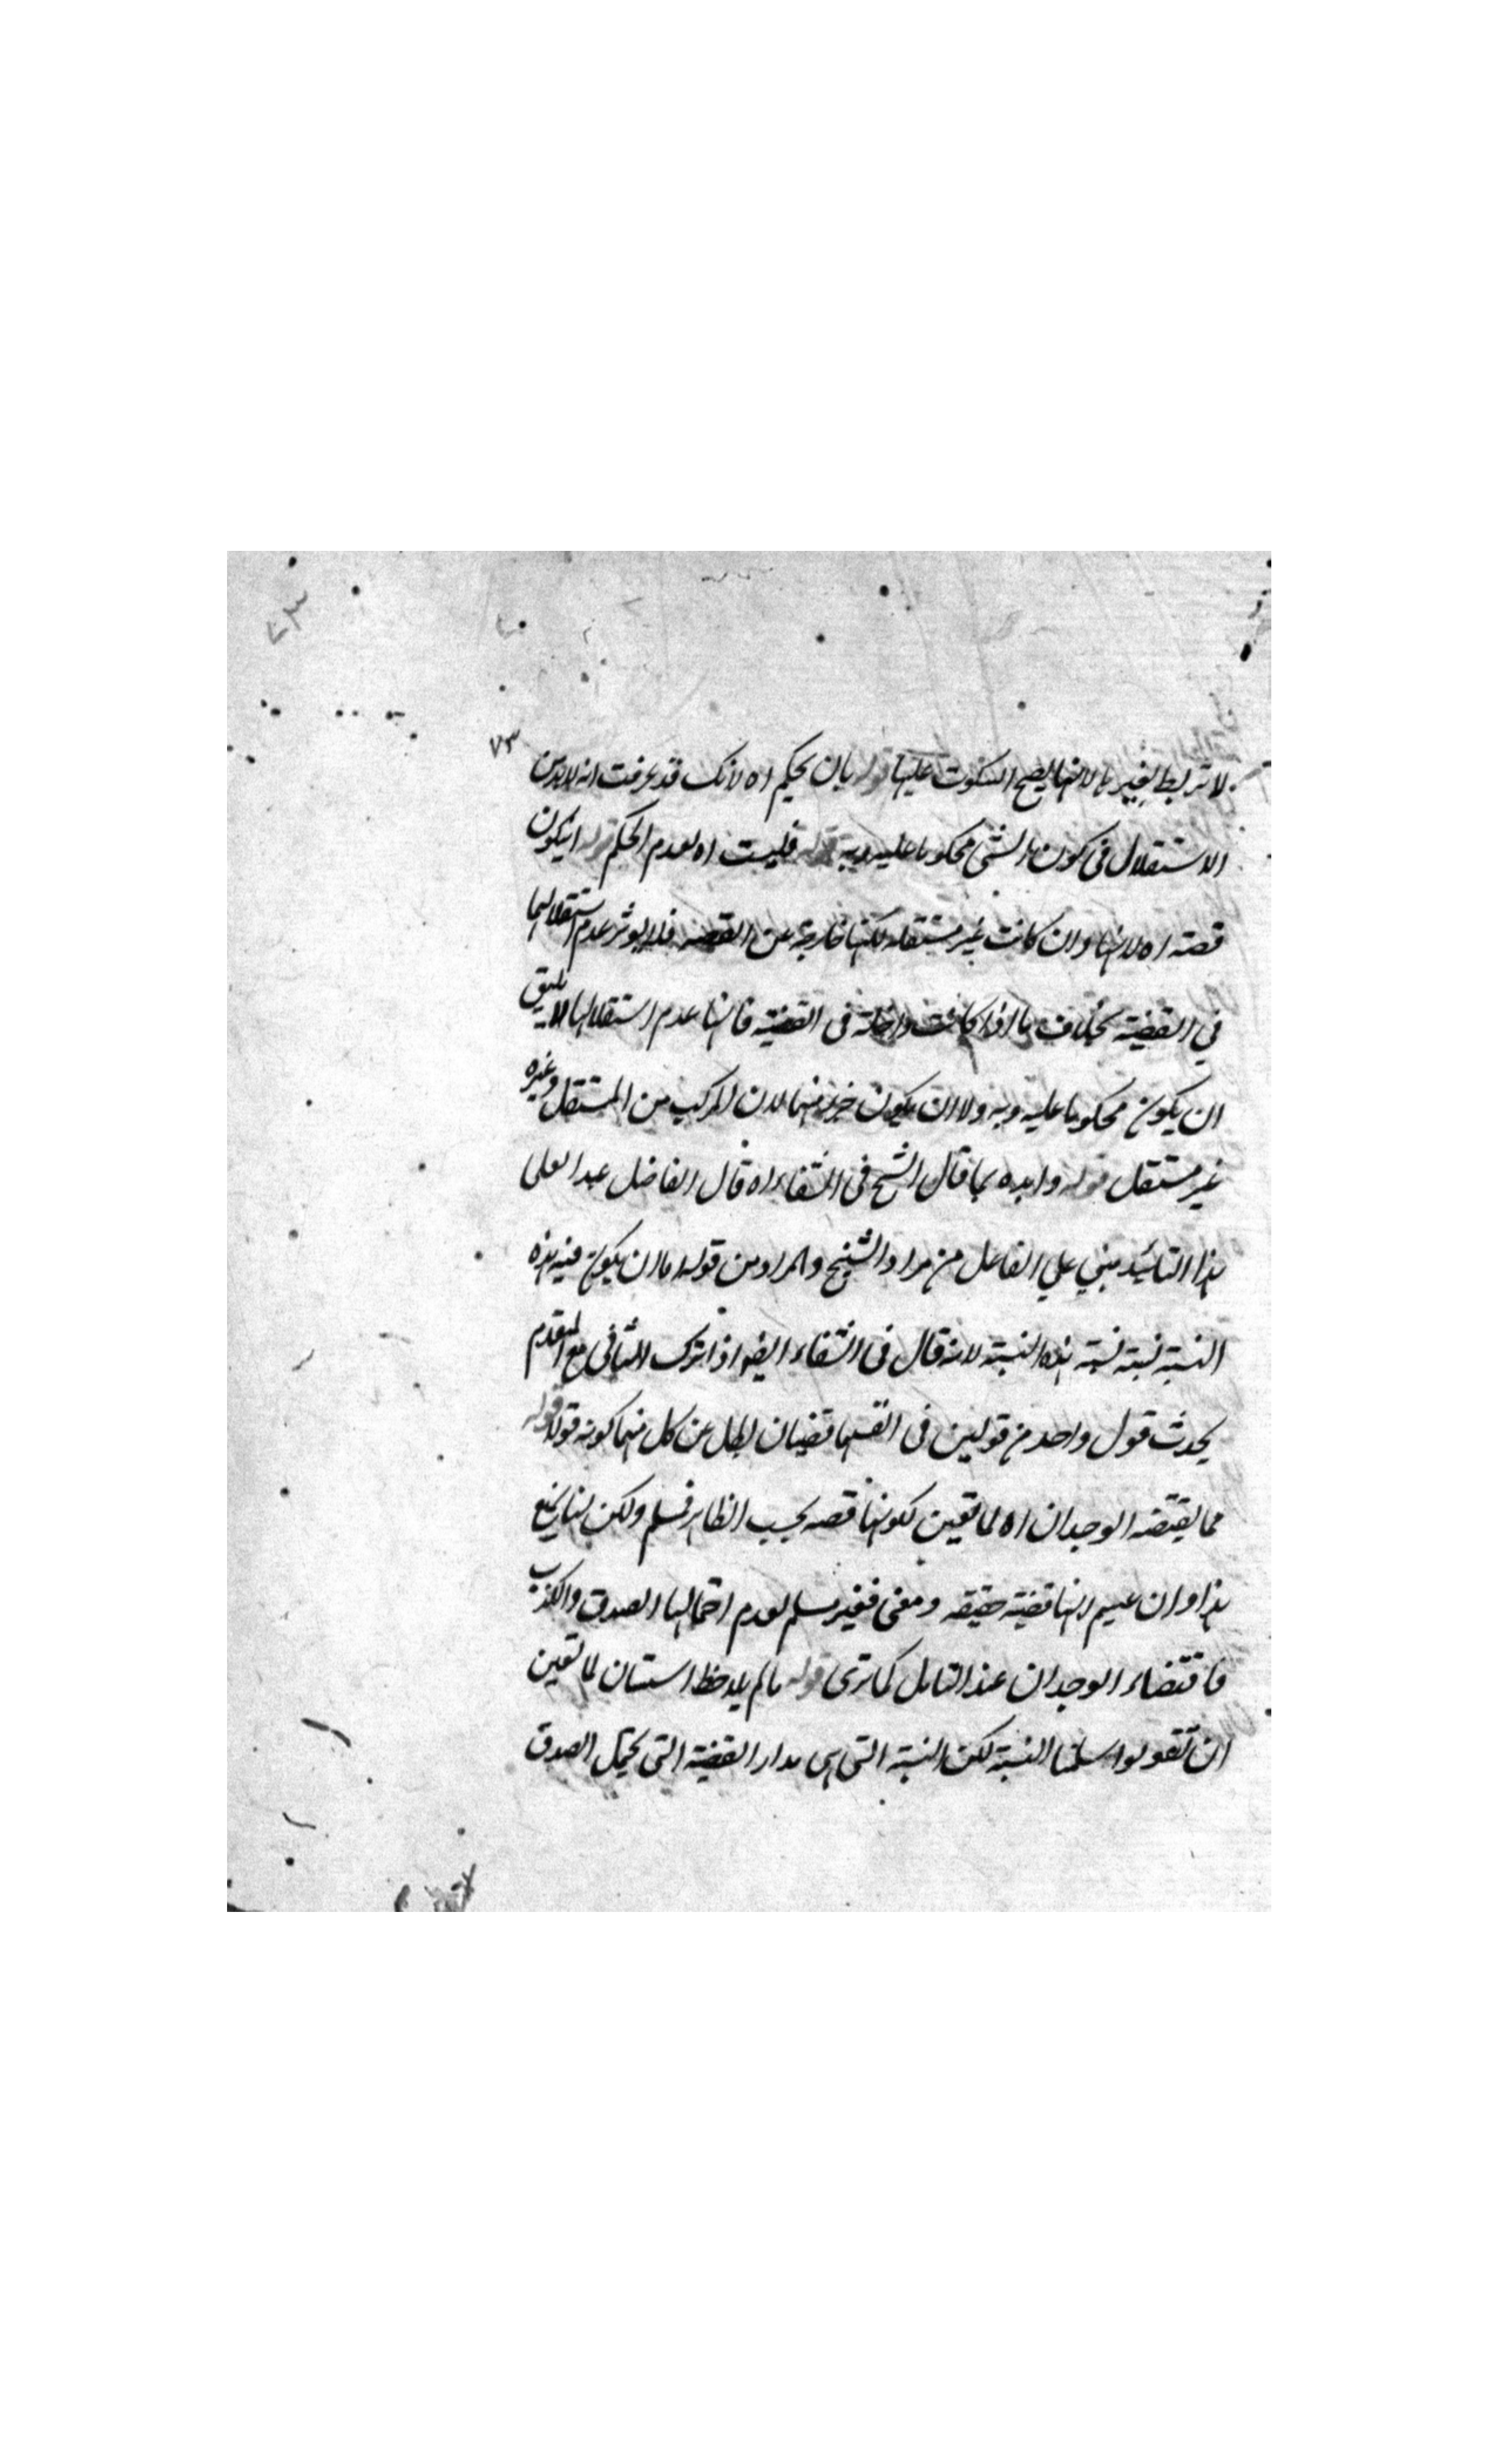 ٧٣
لا تربط بغيرها لانها يصح السكوت عليها قوله بان يحكم اه لانك قد عرفت انه لا بد من
الاستقلال فى كون الشى محكوما عليه وبه قوله فليست اه لعدم الحكم قوله ان يكون
قصته اه لانها وان كانت غير مستقله لكنها خارجة عن القضيه فلا يوثر عدم استقلالها
في القضية بخلاف ما اذا كانت داخلة فى القضية فانها عدم استقلالها لا يليق
ان يكون محكوما عليه وبه ولا ان يكون جزء منهما لان المركب من المستقل وغيره
غير مستقل قوله وايده بما قال الشيخ فى الشفاء اه قال الفاضل عبد العلى
هذا التائيد مبني علي الغافل من مراد الشيخ والمراد من قوله اما ان يكون فيه هذه
النسبة نسبة نسبة هذه النسبة لانه قال فى الشفاء ايضا اذا ترك الثانى مع المقدم
يحدث قول واحد من قولين فى انفسهما قضيتان بطل عن كل منهما كونه قولا قوله
مما يقتضه الوجدان اه لما تعين لكونها قصه بحسب الظاهر فمسلم ولكن
هذا وان عنيتم انها قضية حقيقه ومعنى فغير مسلم لعدم احتمالها الصدق والكذب
فاقتضاء الوجدان عند التامل كما ترى قوله ما لم يلاحظ لما تعين
ان تقولوا سلمنا النسبة لكن النسبة التى هى مدار القضية التى يحتمل الصدق